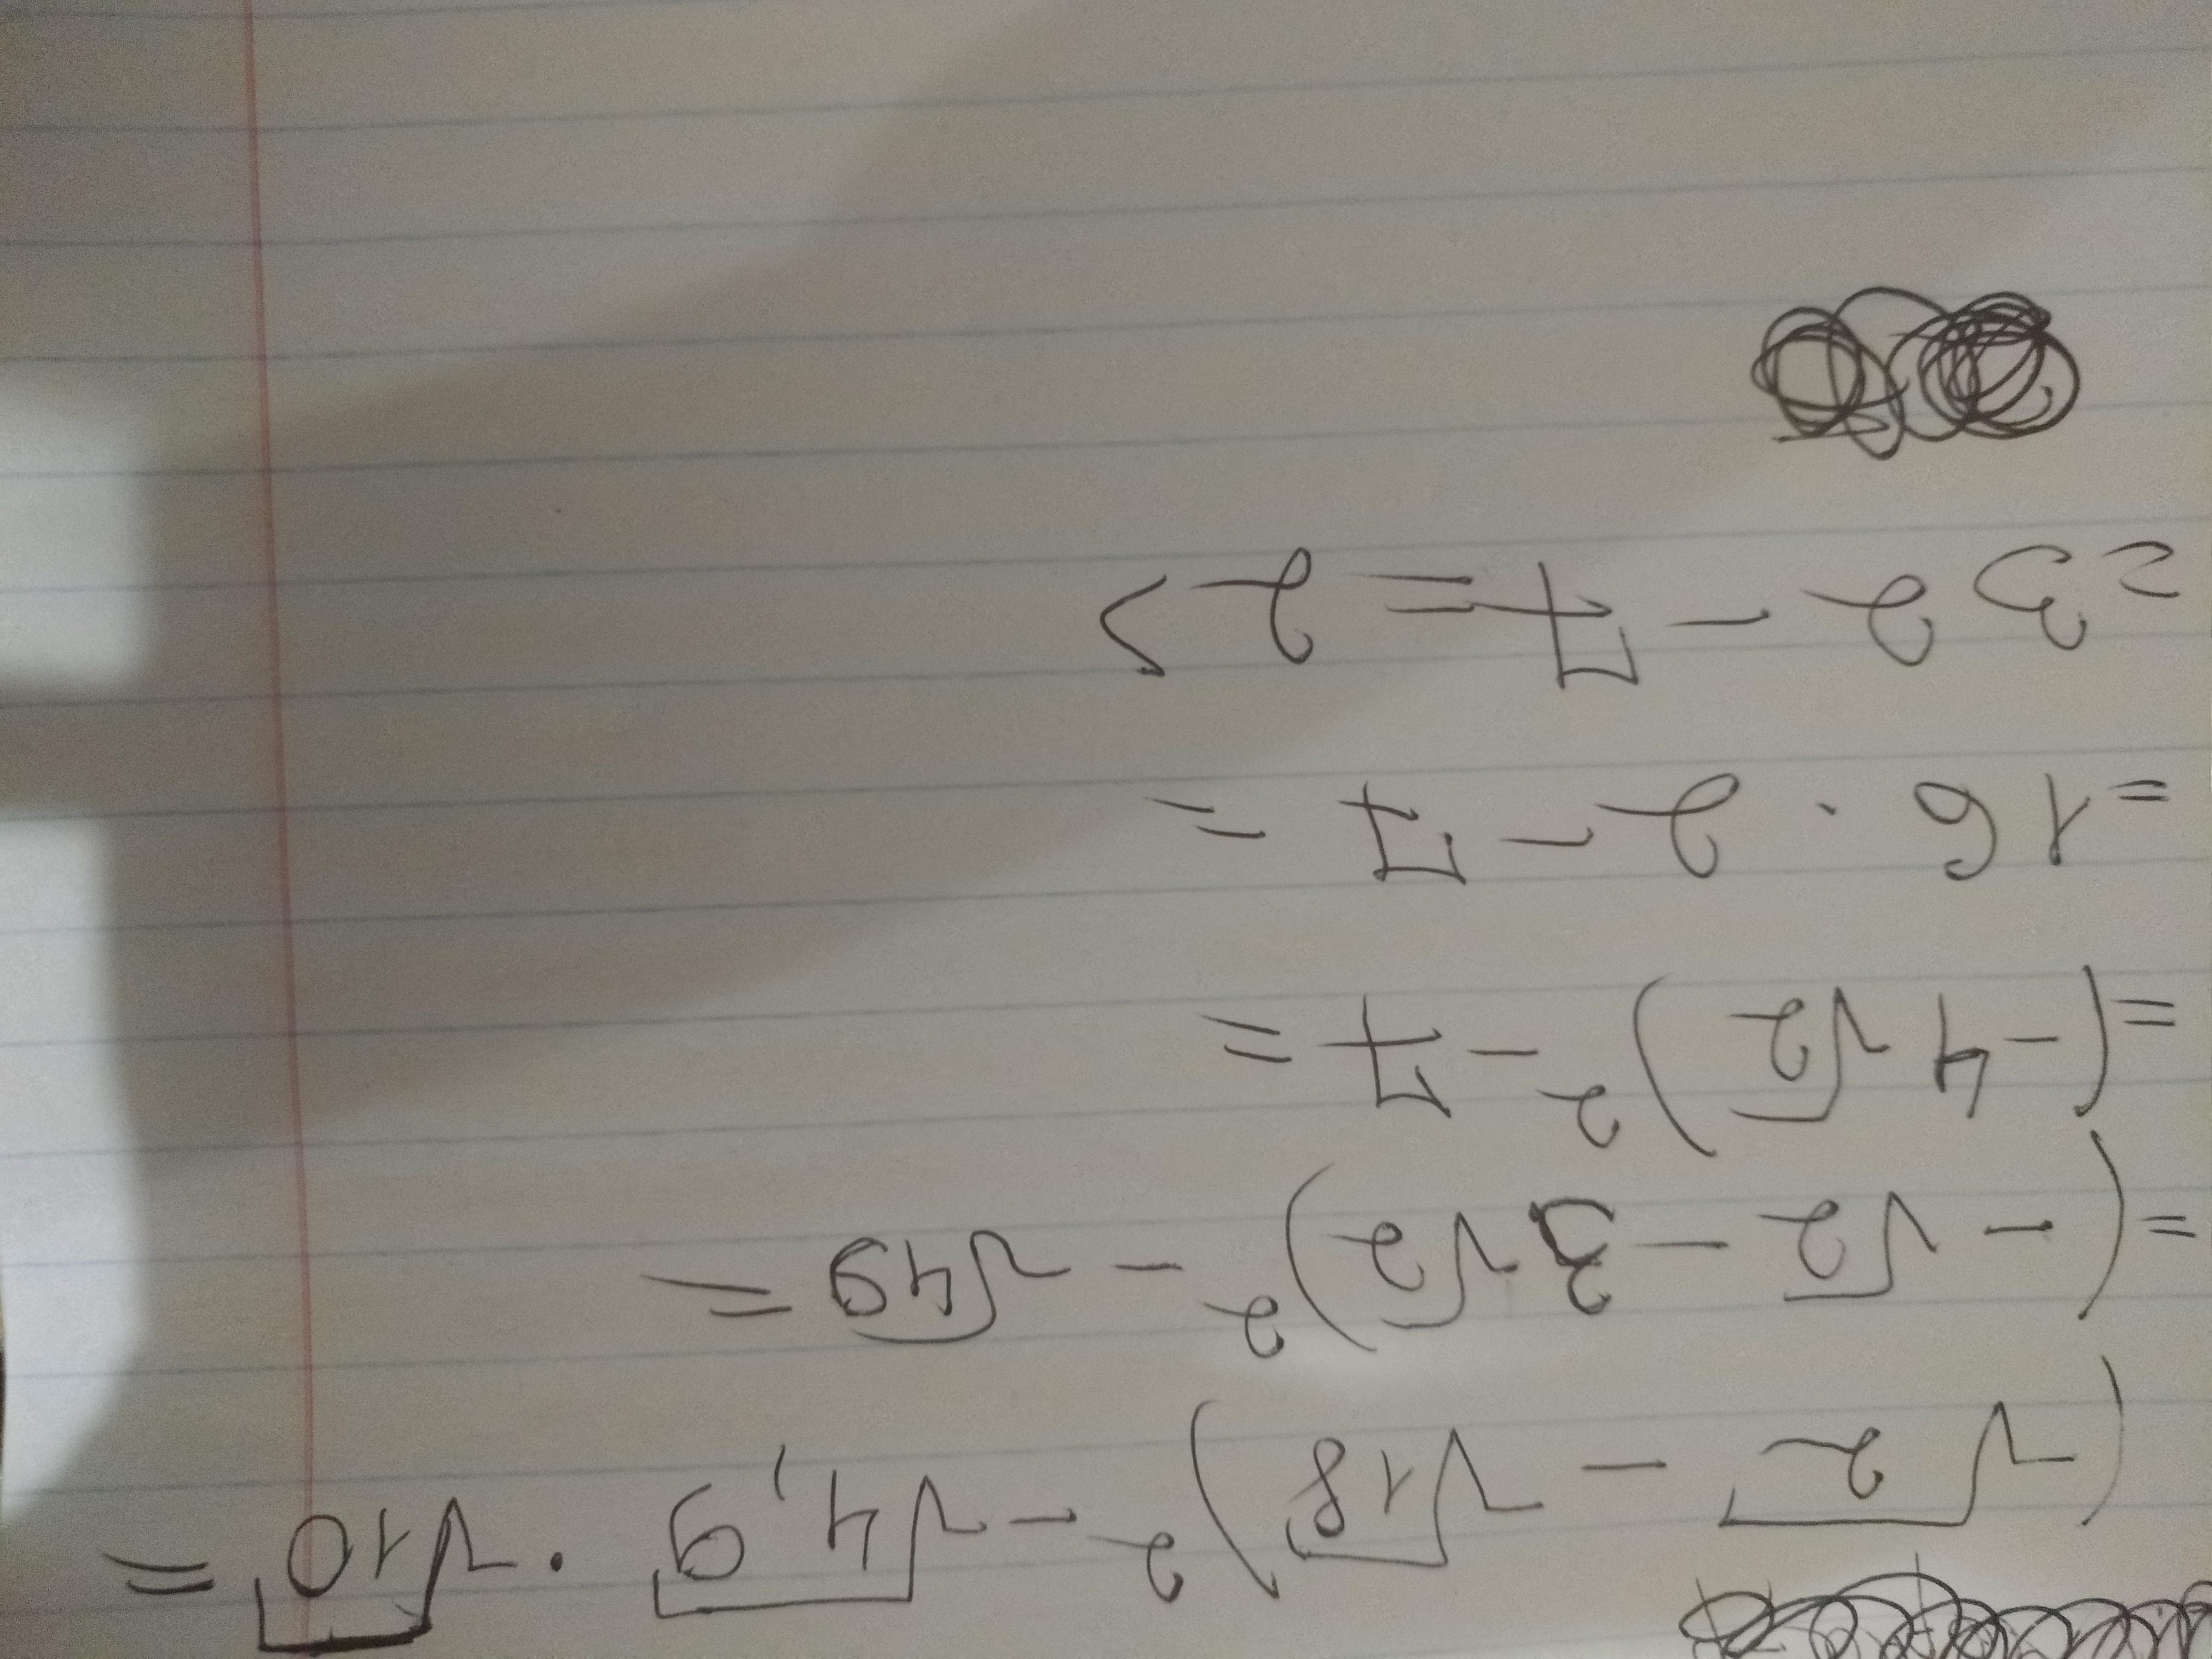 (√2 - √18)² - √4,9 · √10 =
= (-√2 - 3√2)² - √49 =
= (-4√2)² - 7 =
= 16 · 2 - 7 =
= 32 - 7 = 2>